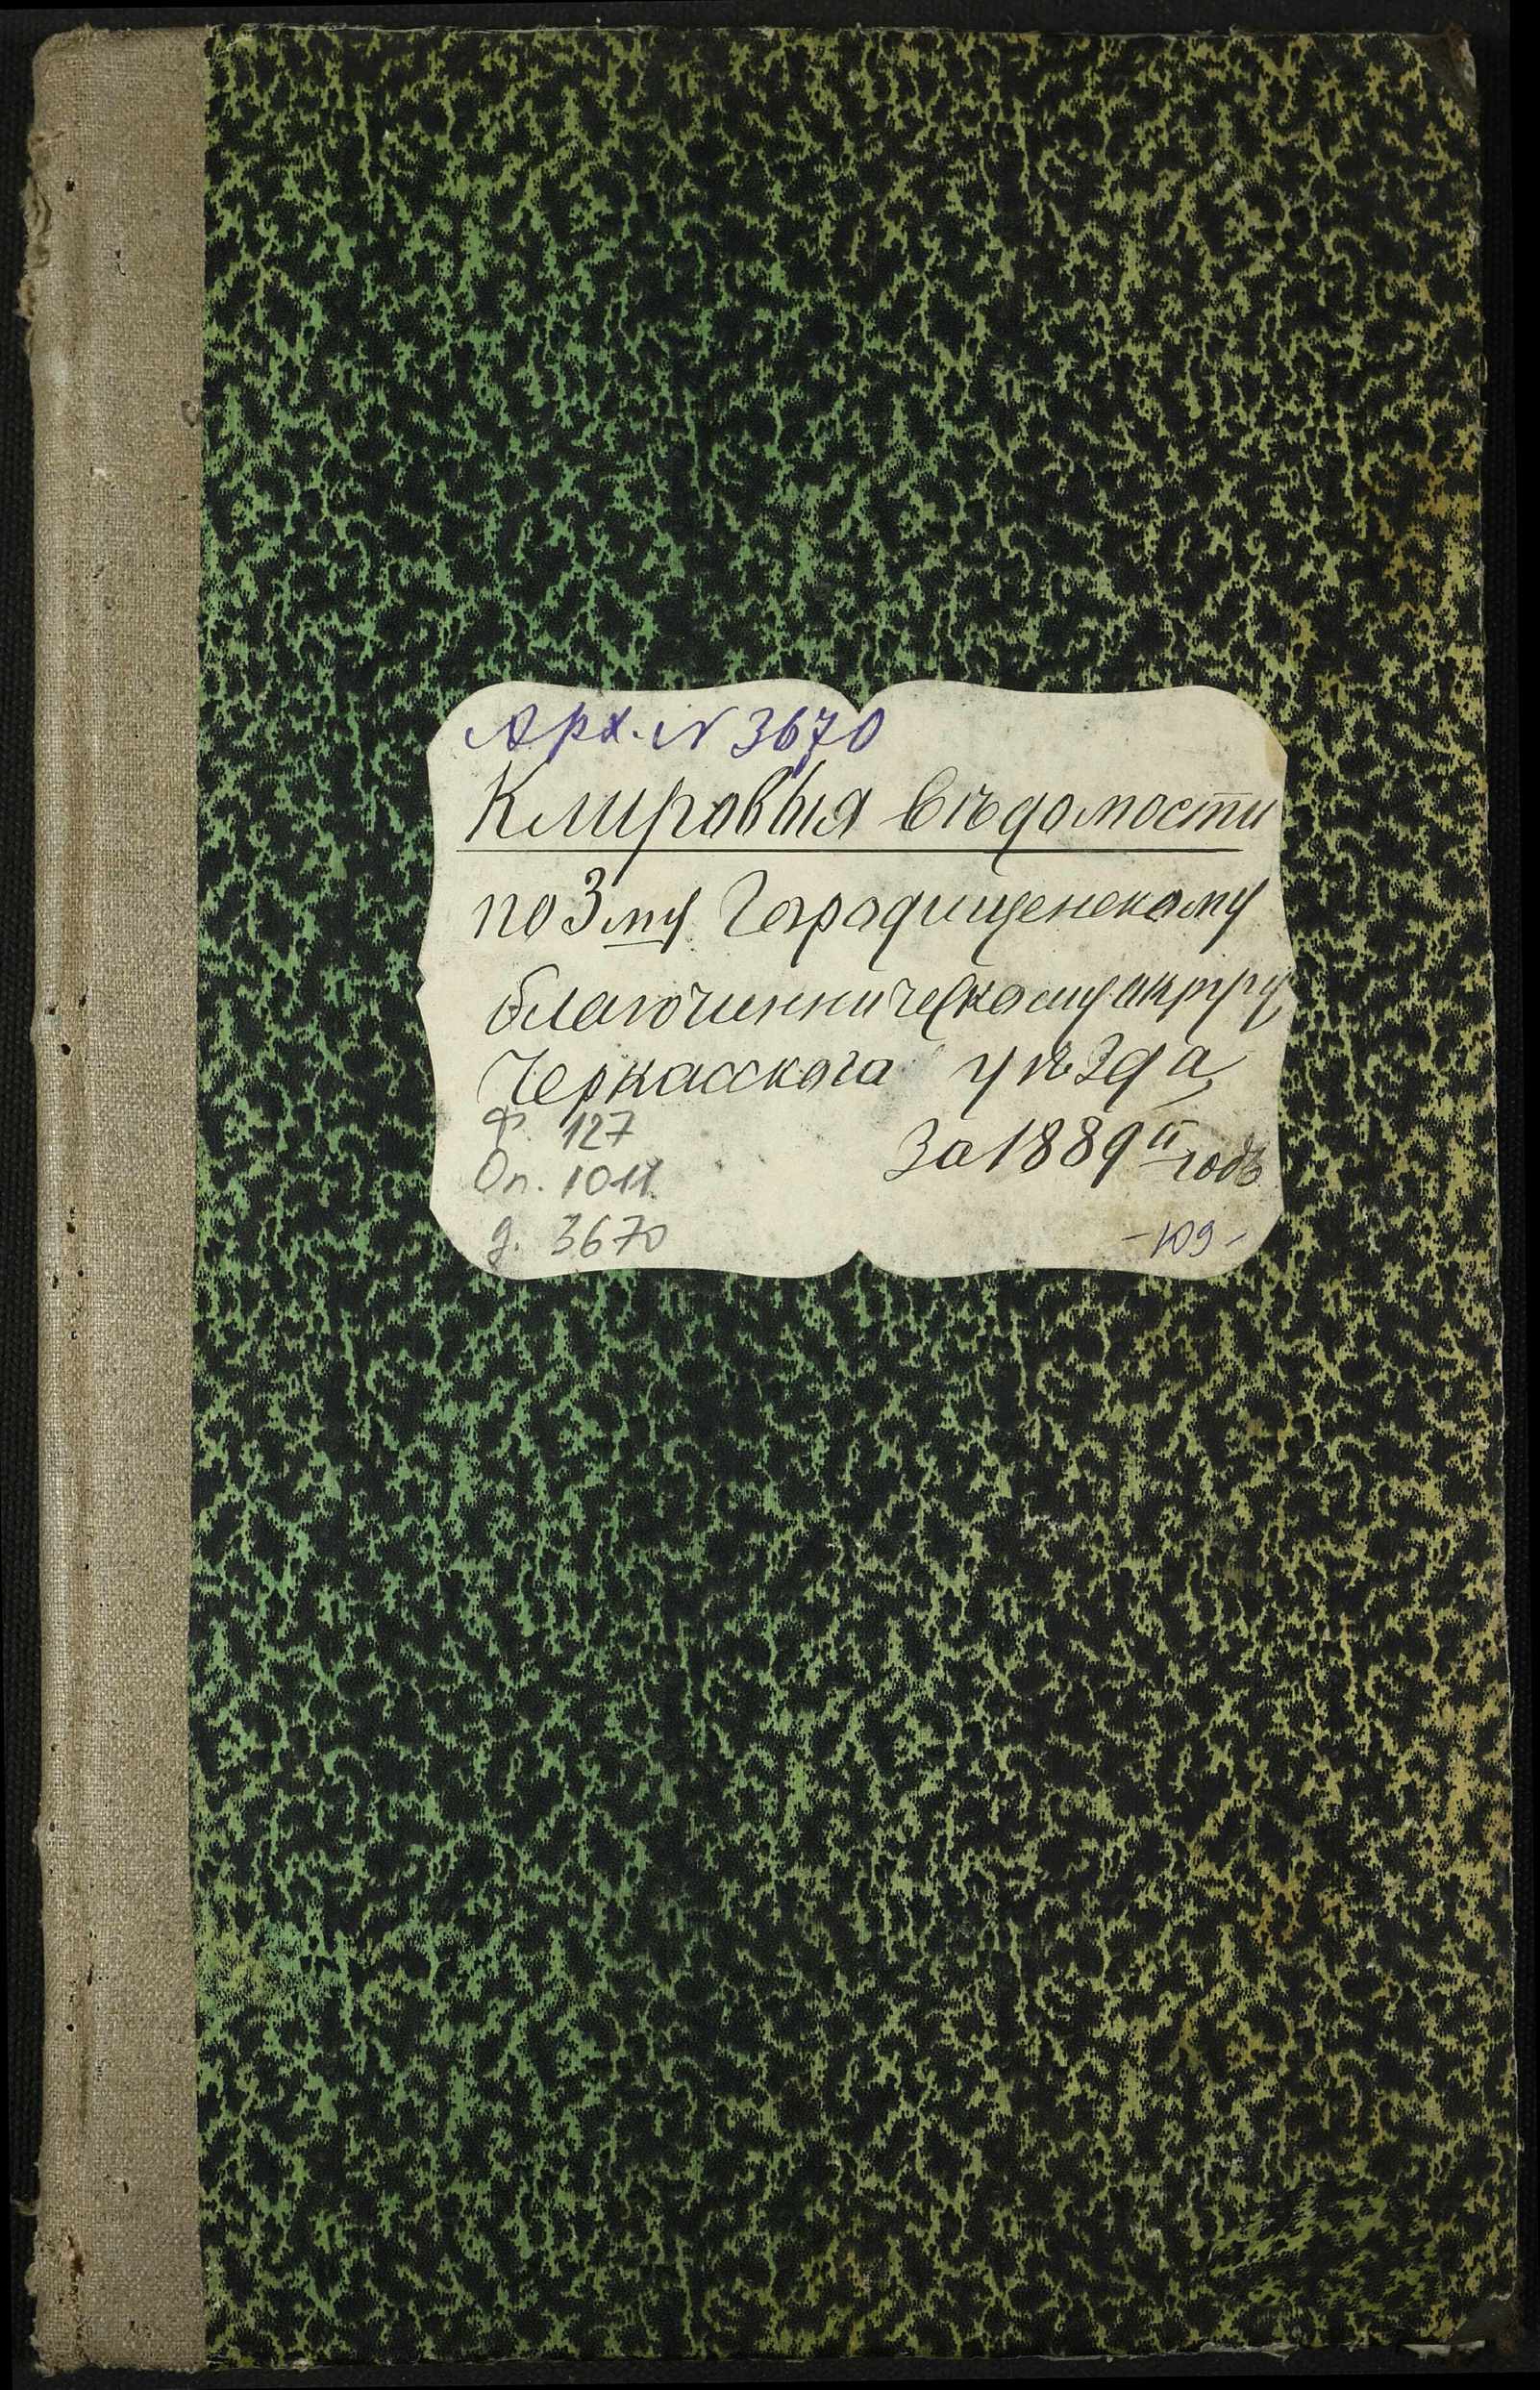 Арх. N 3670
Клировыя вѣдомости
по 3му Городищенскому
благочинническому округу
Черкасскаго уѣзда
За 1889й годъ
Ф. 127
Оп. 1011
д. 3670
-109-